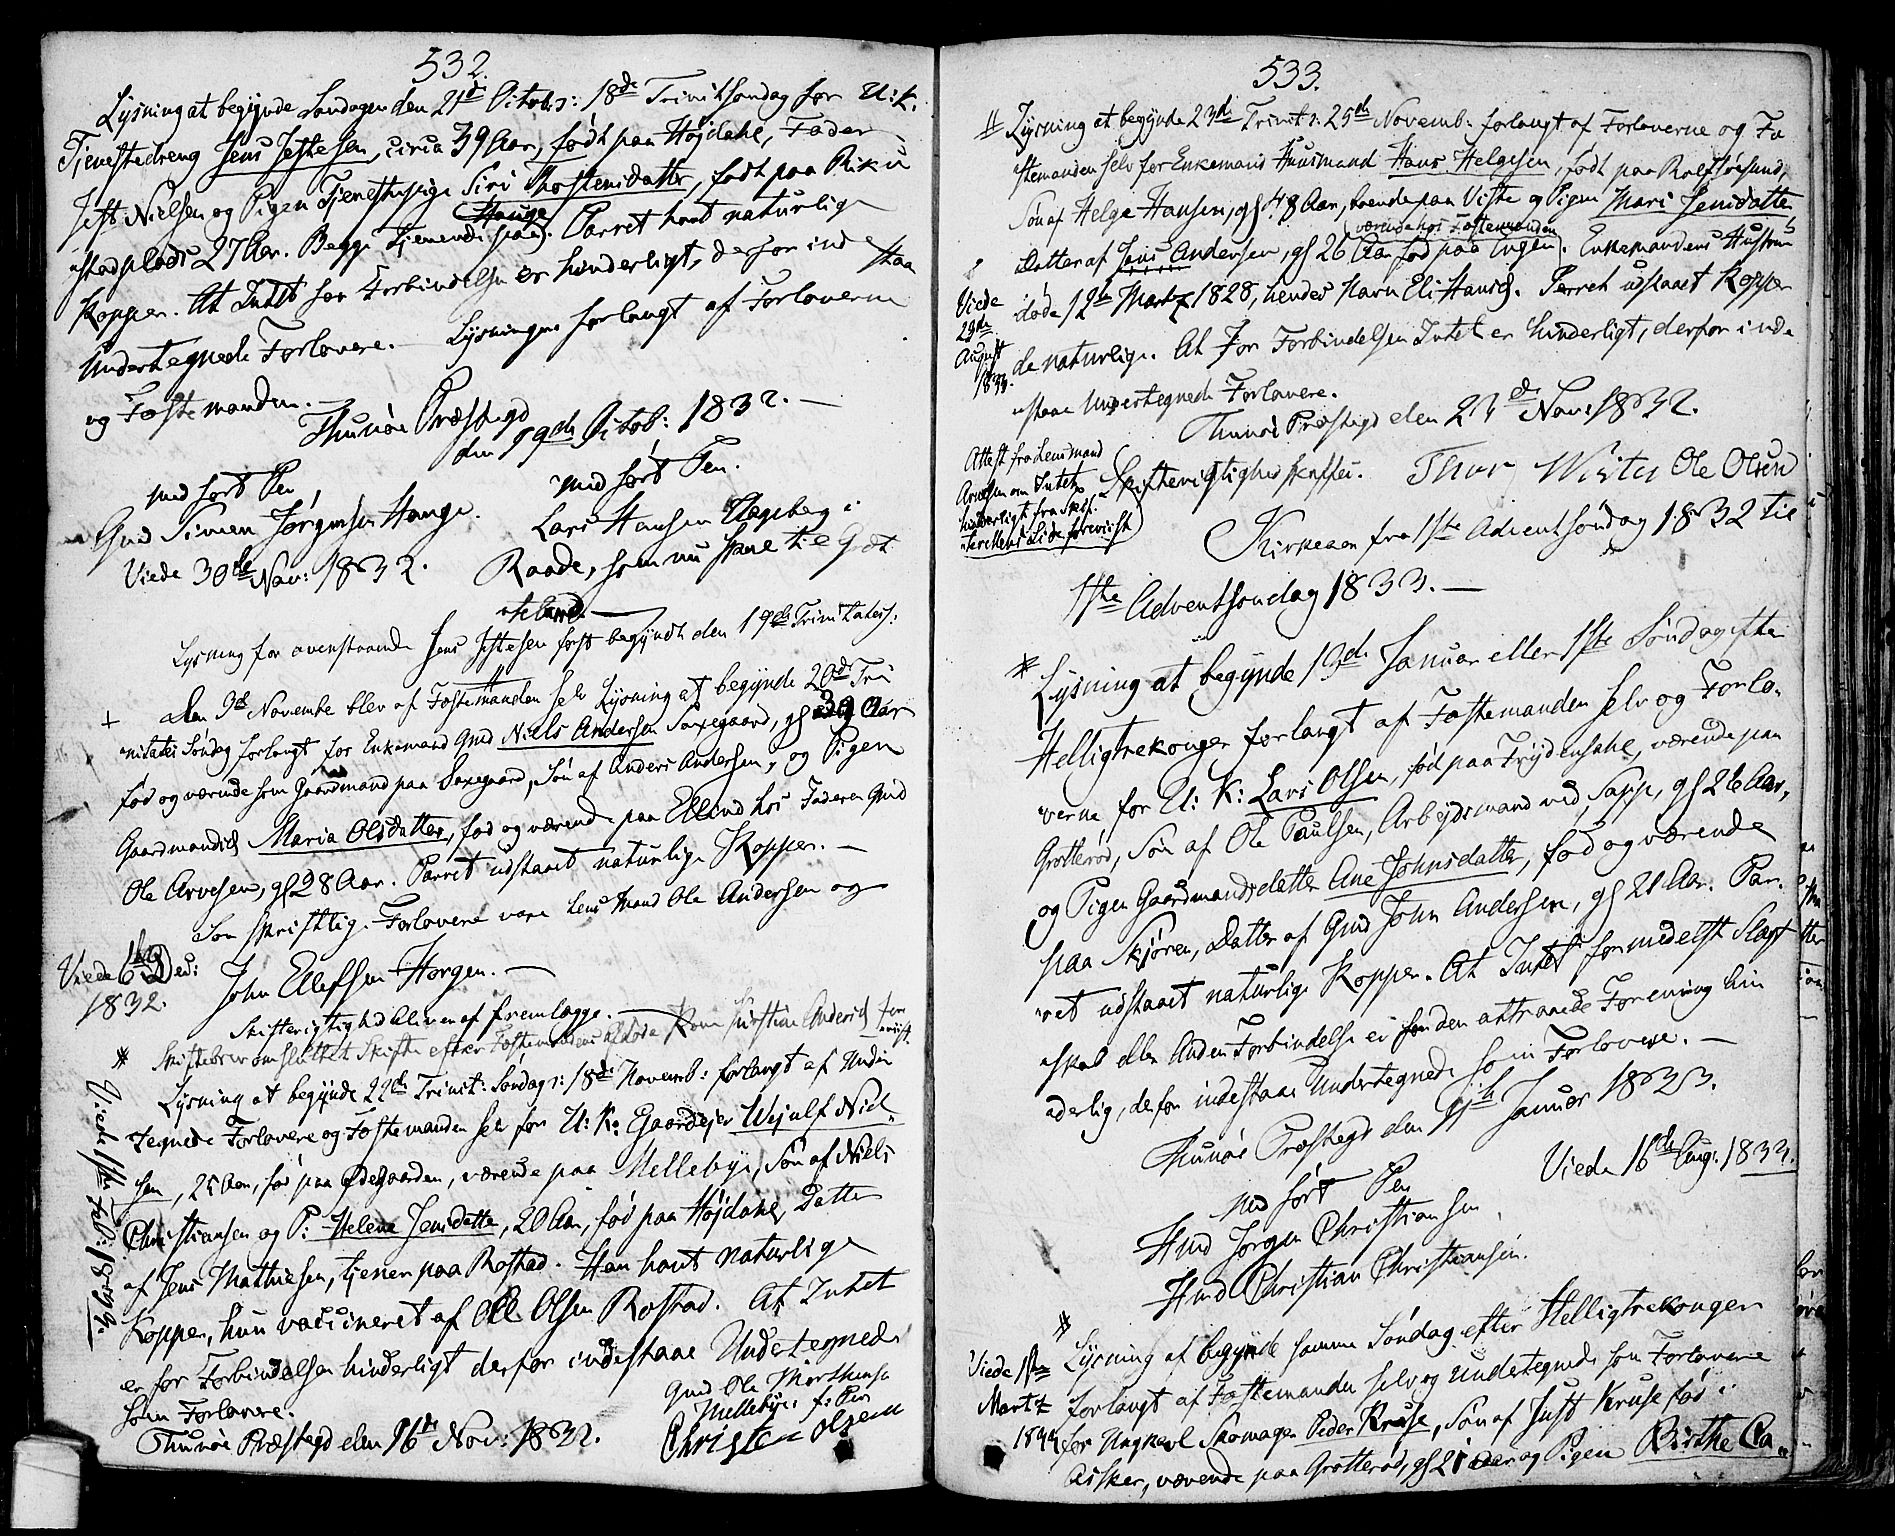 532.
Lysning at begynde Søndagen den 21de Octob: 18de Trinitsøndag for U: K.
Tjenestedreng Jens Jestesen, circa 39 Aar, født paa Højdahl, Fader
Jest Nielsen og Pigen Tjenestepige Siri Thostensdatter, født paa
stadplads 27 Aar. Begge tjenende paa Hauge. Parret havt naturlige
Kopper. At Intet for Forbindelsen er hinderligt, derfor inde staa
Undertegnede Forlovere. Lysningen forlangt af Forloverne
og Fæstemanden. —
Thunøe Præstegd
den 19de Octob: 1832. —
med ført Pen
med ført Pen.
Gmd Simen Jørgensen Hauge.
Lars Hansen Hageberg i
Viede 30de Nov: 1832.
Raade, som nu
Lysning for ovenstaaende Jens Jestesen først begyndt den 19de Trinitatis:
+ Den 9de Novembe blev af Fæstemanden selv Lysning at begynde 20de Tri
nitatis Søndag forlangt for Enkemand Gmd Niels Andersen Saxegaard, gl 39 Aar
fød og værende som Gaardmand paa Saxegaard, Søn af Anders Andersen, og Pigen
Gaardmandsd Maria Olsdatter, fød og værende paa Ellind hos Faderen Gmd
Ole Arvesen, gl 28 Aar. Parret udstaaet naturlige Kopper. —
Som skriftlige Forlovere vare Lensmand Ole Andersen og
Viede 6te Dec: 1832.
John Ellefsen Horgen. —
Skifterigtighed bliver at fremlægge. —
Skiftebrev om sluttet Skifte efter Fæstemandens afdøde Kone Kirstine Andersd for
eviist.
* Lysning at begynde 22de Trinit: Søndag: 18de Novemb: forlangt af Under
tegnede Forlovere og Fæstemanden selv for U: K: Gaardejer Wejulf Niel
sen, 25 Aar, fød paa Ødegaarden, værende paa Mellebye, Søn af Niels
Christiansen og P: Helene Jensdatter, 20 Aar, fød paa Højdahl, Datter
af Jens Mathiesen, tjener paa Rostad. Han havt naturlige
Kopper, hun vaccineret af Ole Olsen Rostad. At Intet
er for Forbindelsen hinderligt derfor indestaae Undertegnede
som Forlovere.
Thunøe Præstegd den 16de Nov: 1832.
Gmd Ole Mortensen
Mellebye: f: Pen
Christen Olsen
Viede 1ste Feb: 1834.
533.
# Lysning at begynde 23de Trinit: 25de Novemb: forlangt af Forloverne og Fæ
stemanden selv for Enkemand Huusmand Hans Helgesen, født paa Rolfsøesund,
Søn af Helge Hansen, gl 48 Aar, boende paa Viste og Pigen Mari Jensdatter
værende hos Fæstemanden
Datter af Jens Andersen, gl 26 Aar fød paa Engen. Enkemandens Hustru
døde 12te Martz 1828, hendes Navn Eli Hansd. Parret udstaaet Kopper
de naturlige. At for Forbindelsen Intet er hinderligt, derfor inde
staae Undertegnede Forlovere.
Viede
23de
August
1833.
Thunøe Præstegd den 23de Nov: 1832.
Attest fra Lensmand
Arvesen om Intet
hinderligt fra Skif
terettens Side foreviist
Skifterigtighed skaffes. Thor Wister Ole Olsen
Kirkeaar fra 1ste Adventsøndag 1832 til
1ste Adventsøndag 1833. —
* Lysning at begynde 13de Januar eller 1ste Søndag efter
Helligtrekonger forlangt af Fæstemanden selv og Forlo-
verne for U: K: Lars Olsen, fød paa Frydensahl, værende paa
Grotterød, Søn af Ole Paulsen, Arbejdsmand ved Sapp, gl 26 Aar,
og Pigen Gaardmandsdatter Ane Johnsdatter, fød og værende
paa Skjøren, Datter af Gmd John Andersen, gl 21 Aar. Par-
ret udstaaet naturlige Kopper. At Intet formedelst Slægt
skab eller Anden Forbindelse er for den attraaede Forening hin
derlig, derfor indestaae Undertegnede som Forlovere. —
Thunøe Præstegd den 11te Januar 1833.
Viede 16de Aug: 1833.
med ført Pen
Hmd Jørgen Christiansen
Hmd Christian Christiansen.
#
Lysning at begynde samme Søndag efter Helligtrekonger
forlangt af Fæstemanden selv og undertegnede som Forlovere
for Ungkarl Skomager Peder Kruse, Søn af Just Kruse fød i
Asker, værende paa Grotterød, gl 21 Aar og Pigen Birthe Ca-
Viede 1ste
Martz
1844